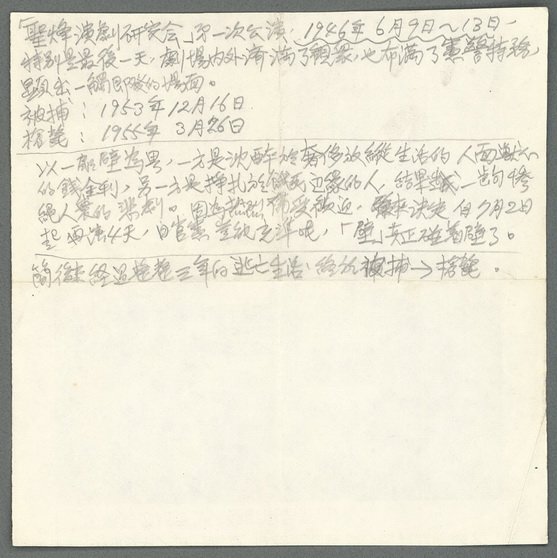 「聖烽演劇研究会」第一次公演：1946年6月9日～13日－
特別是最後一天，劇場內外濟滿了觀衆，也布滿了憲警特務，
顕出一觸即發的場面。
被捕：1953年12月16日
槍斃：1955年3月26日
以一層壁為界，一方是沈醉於奢侈放縱生活的人面獸心
的錢金利，另一方是掙扎於餓死边緣的人，結果 一齣慘
絕人寰的悲劇。因過 熱烈 受歡迎，後來決定自7月2日
起再演4天，旦官憲 吔，「壁」真正碰着壁了。
簡 経過 三年的逃亡生活 終於被捕→槍斃。